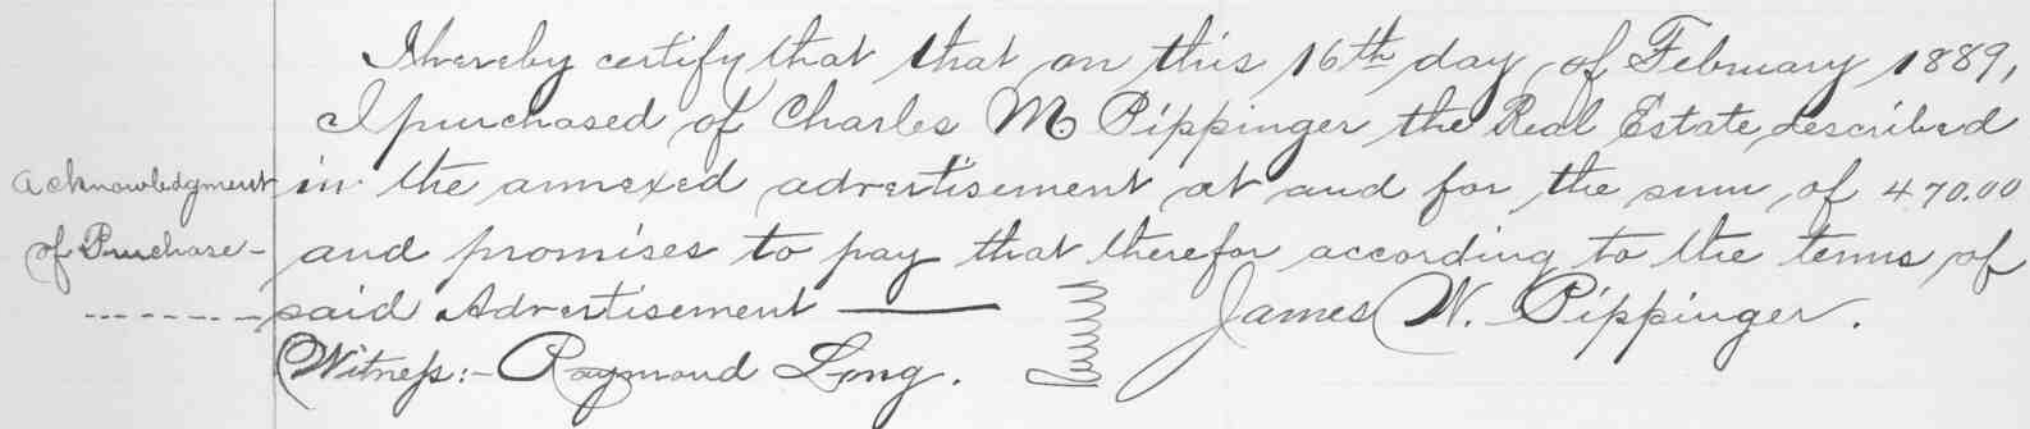 I hereby certify that that on this 16th day of February 1889,
I purchased of Charles M. Pippinger the Real Estate described
Acknowledgment in the annexed advertisement at and for the sum of 470.00
of Purchase - and promises to pay that therefor according to the terms of
said Advertisement —— James W. Pippinger.
Witness:- Raymond Long.